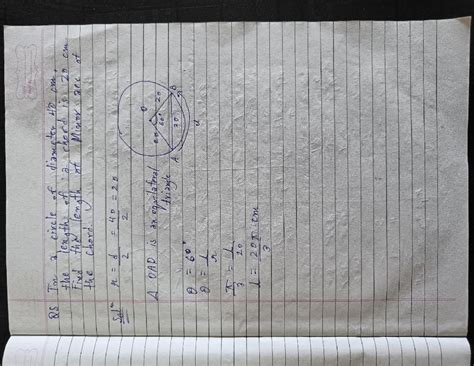 Q5 In a circle of diameter 40 cm,
the length of a chord is 20 cm
Find the length of Minor arc of
the chord.
Solⁿ r = d/2 = 40/2 = 20
Δ OAB is an equilateral
triangle
θ = 60°
θ = l/r
π/3 = l/20
l = 20π/3 cm
O
60°
20
A
B